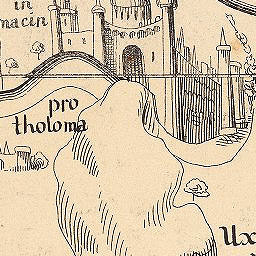 in
macin
pro
tholoma
Ux